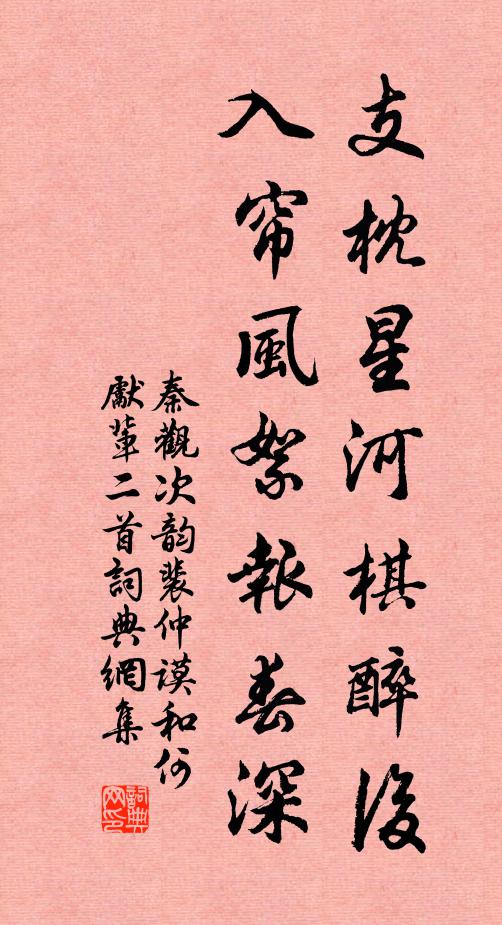 支枕星河棋醉後
入帘風絮報春深
秦觀次韵裴仲謨和何
獻輩二首詞典網集
詞典网印